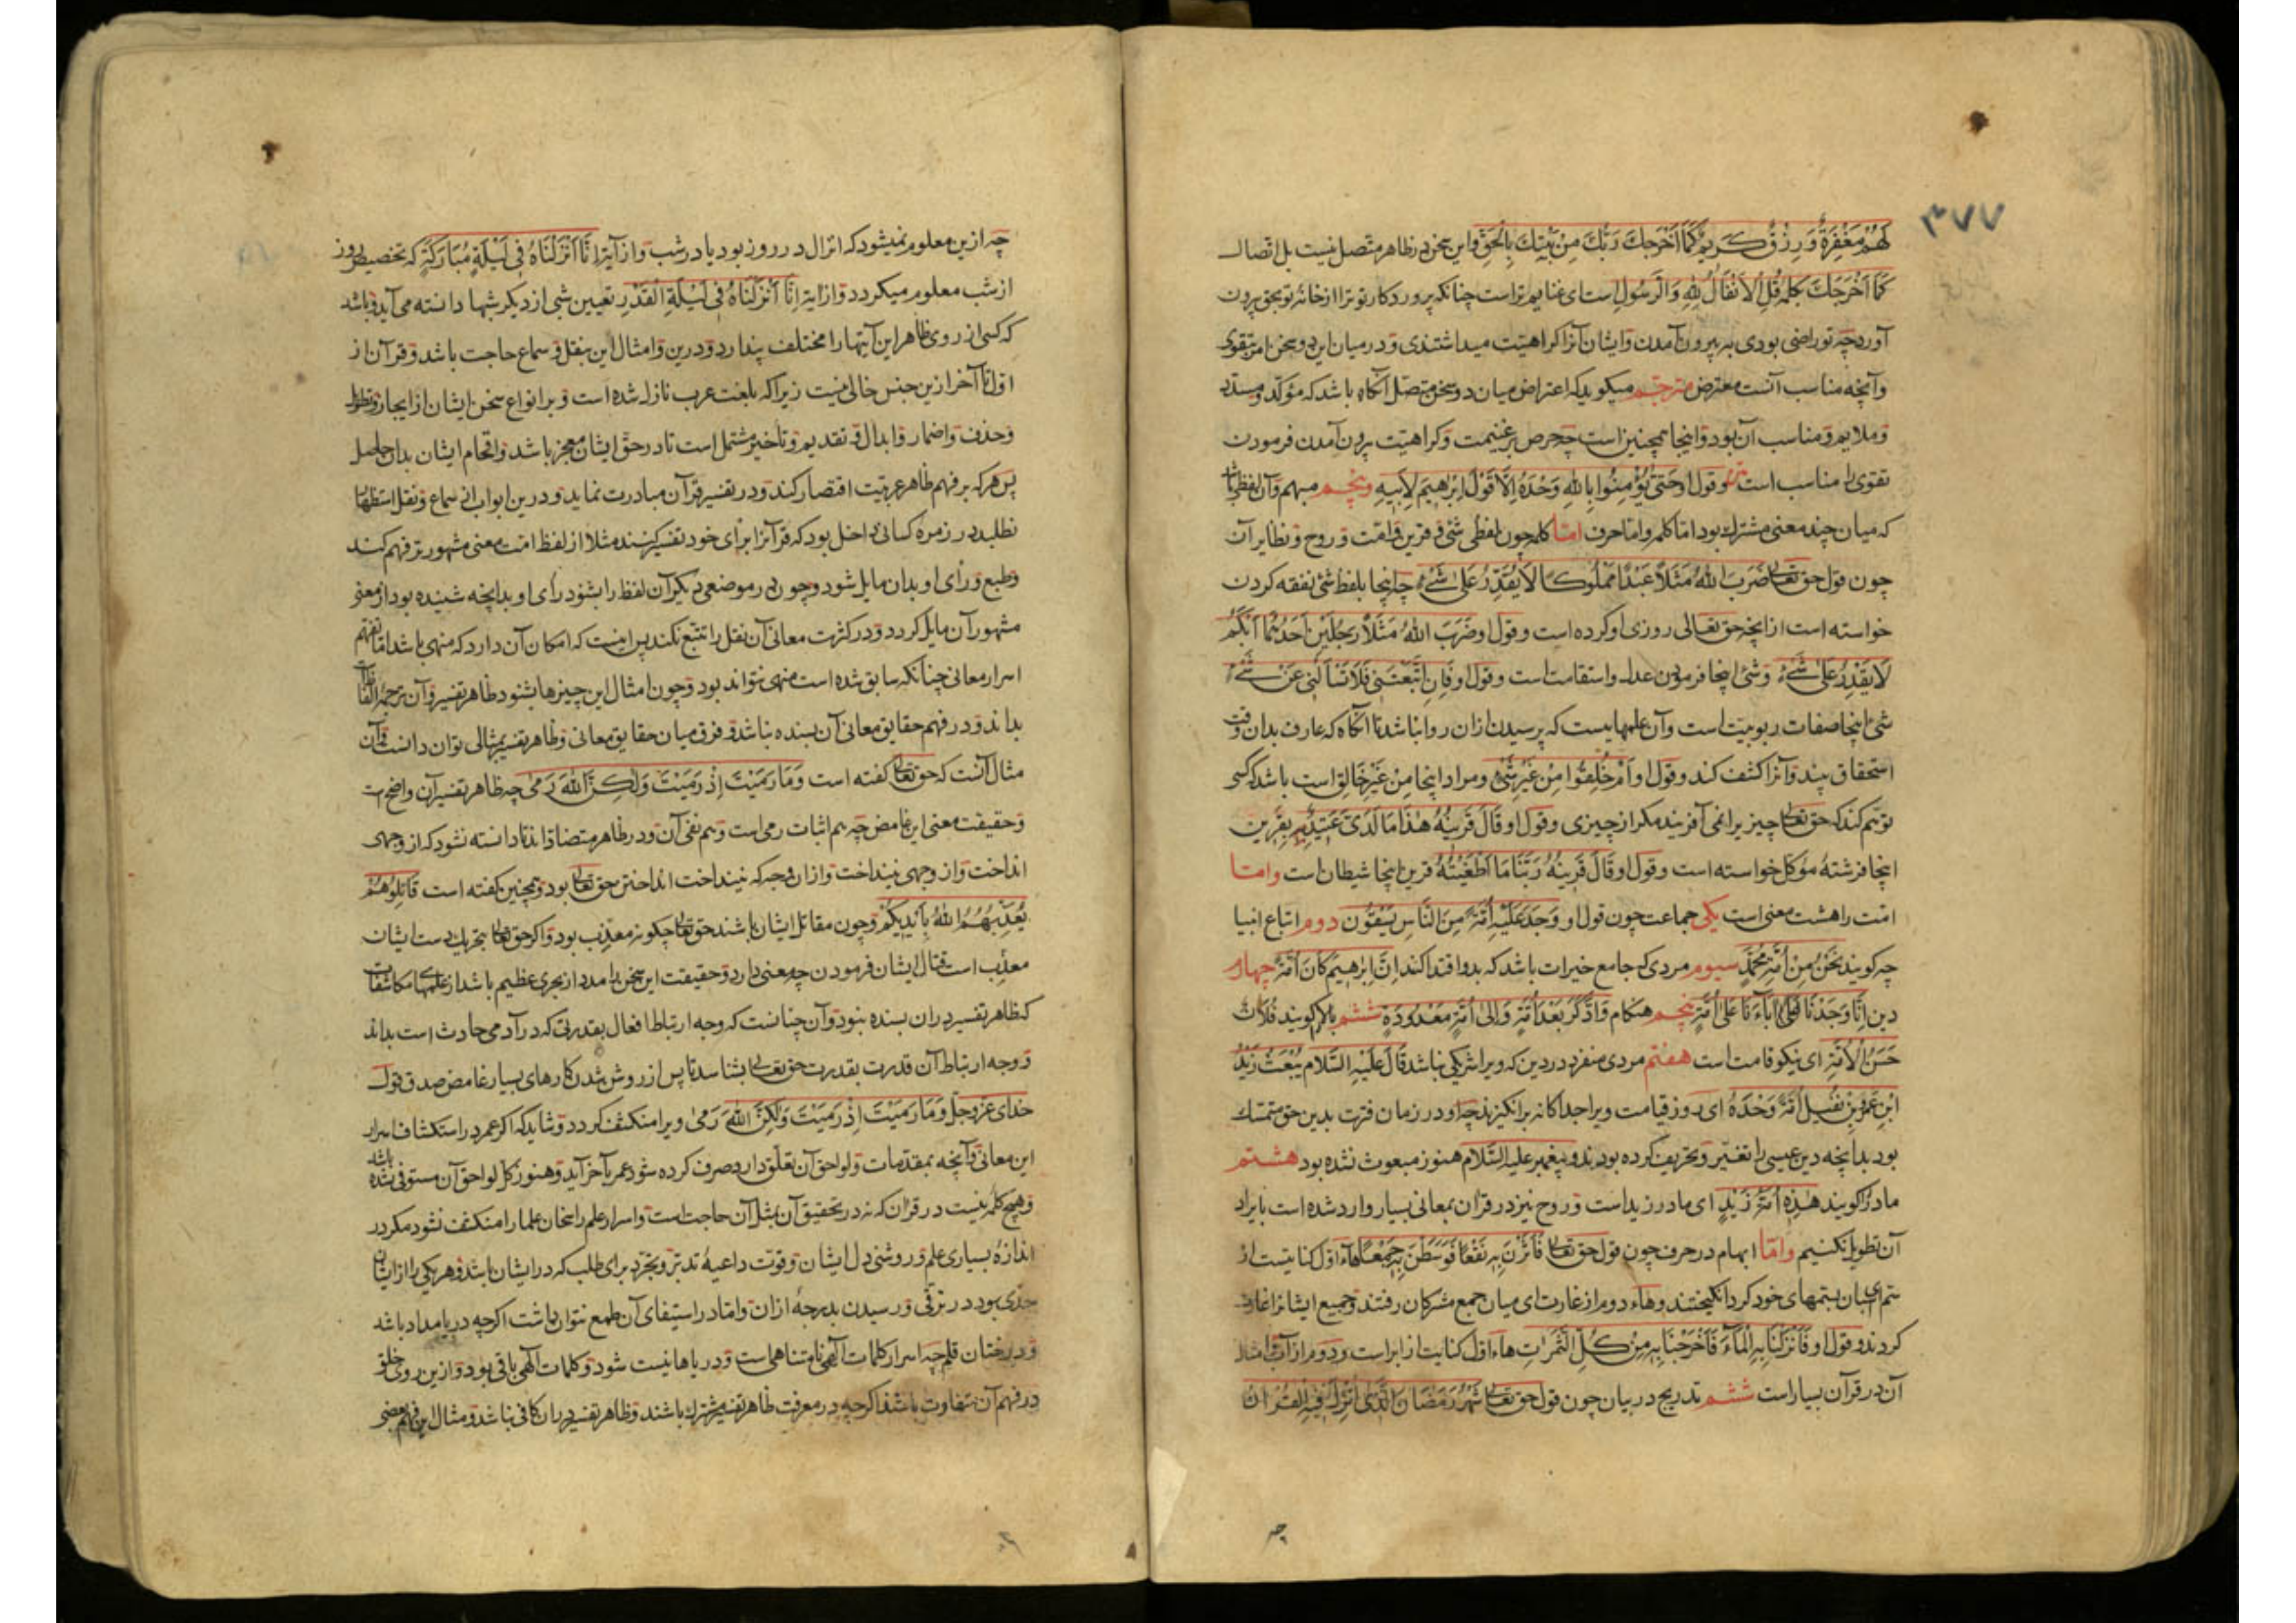 ۳۷۷
لَهُمْ مَغْفِرَةٌ وَرِزْقٌ كَرِيمٌ كَمَا أَخْرَجَكَ رَبُّكَ مِنْ بَيْتِكَ بِالْحَقِّ واین سخن در ظاهر متصل نیست بل اتصال
كَمَا أَخْرَجَكَ بکلمه قُلِ الْأَنْفَالُ لِلّٰهِ وَالرَّسُولِ است ای غنایم تراست چنانکه پروردکار تو ترا از خانهٔ تو بحق بیرون
آورد چه تو راضی بودی به بیرون آمدن و ایشان آنرا کراهیت میداشتندی و در میان این دو سخن امر بتقوی
وآنچه مناسب آنست معترض مترجم میکوید که اعتراض میان دو سخن متصل آنکاه باشد که مؤکد و مسدد
و ملایم و مناسب آن بود و اینجا همچنین است چه حرص بر غنیمت و کراهیت بیرون آمدن فرمودن
تقوی را مناسب است و قول او حَتَّى تُؤْمِنُوا بِاللّٰهِ وَحْدَهُ إِلَّا قَوْلَ إِبْرَاهِيمَ لِأَبِيهِ وپنجم مبهم وآن لفظی باشد
که میان چند معنی مشترک بود اما کلمه واما حرف اما کلمه چون لفظ شی و قرین و امت و روح و نظایر آن
چون قول حق تعالی ضَرَبَ اللّٰهُ مَثَلًا عَبْدًا مَمْلُوكًا لَا يَقْدِرُ عَلَى شَيْءٍ چه اینجا بلفظ شئ نفقه کردن
خواسته است از آنچه حق تعالی روزی او کرده است و قول او ضَرَبَ اللّٰهُ مَثَلًا رَجُلَيْنِ أَحَدُهُمَا أَبْكَمُ
لَا يَقْدِرُ عَلَى شَيْءٍ و شئ اینجا فرمودن عدل و استقامت است و قول او فَإِنِ اتَّبَعْتَنِي فَلَا تَسْأَلْنِي عَنْ شَيْءٍ
شئ اینجا صفات ربوبیت است وآن علمهاییست که پرسیدن ازان روا نباشد تا آنکاه که عارف بدان وقت
استحقاق بیند و آنرا کشف کند و قول او أَمْ خُلِقُوا مِنْ غَيْرِ شَيْءٍ و مراد اینجا مِنْ غَيْرِ خَالِقٍ است باشد که کسی
توهم کند که حق تعالی چیزیرا نمی آفریند مکر از چیزی و قول او قَالَ قَرِينُهُ هَذَا مَا لَدَيَّ عَتِيدٌ بقرین
اینجا فرشتهٔ مؤکل خواسته است و قول او قَالَ قَرِينُهُ رَبَّنَا مَا أَطْغَيْتُهُ قرین اینجا شیطان است واما
امت را هشت معنی است یکی جماعت چون قول او وَجَدَ عَلَيْهِ أُمَّةً مِنَ النَّاسِ يَسْقُونَ دوم اتباع انبیا
چه کویند نَحْنُ مِنْ أُمَّةِ مُحَمَّدٍ سیوم مردی که جامع خیرات باشد که بدو اقتدا کنند إِنَّ إِبْرَاهِيمَ كَانَ أُمَّةً چهارم
دین إِنَّا وَجَدْنَا آبَاءَنَا عَلَى أُمَّةٍ پنجم هنکام وَادَّكَرَ بَعْدَ أُمَّةٍ وَإِلَى أُمَّةٍ مَعْدُودَةٍ ششم بالا کویند فُلَانٌ
حَسَنُ الْأُمَّةِ ای نیکو قامت است هفتم مردی منفرد در دین که ویرا شریکی نباشد قَالَ عَلَيْهِ السَّلَامُ يُبْعَثُ زَيْدُ
ابْنُ عَمْرِو بْنِ نُفَيْلٍ أُمَّةً وَحْدَهُ ای روز قیامت ویرا جداکانه برانکیزند چه او در زمان فترت بدین حق متمسک
بود بدانچه دین عیسی را تغییر و تحریف کرده بودند و پیغمبر علیه السّلام هنوز مبعوث نشده بود هشتم
مادر را کویند هَذِهِ أُمَّةُ زَيْدٍ ای مادر زید است و روح نیز در قرآن بمعانی بسیار وارد شده است بایراد
آن تطویل نکنیم واما ابهام در حرف چون قول حق تعالی فَأَثَرْنَ بِهِ نَقْعًا فَوَسَطْنَ بِهِ جَمْعًا هاء اول کنایتست از
سم اسبان بسمهای خود کرد انکیختند و هاء دوم از غارت ای میان جمع مشرکان رفتند و جمیع ایشانرا غارت
کردند و قول او فَأَنْزَلْنَا بِهِ الْمَاءَ فَأَخْرَجْنَا بِهِ مِنْ كُلِّ الثَّمَرَاتِ هاء اول کنایت از ابر است و دوم از آب و امثال
آن در قرآن بسیار است ششم تدریج در بیان چون قول حق تعالی شَهْرُ رَمَضَانَ الَّذِي أُنْزِلَ فِيهِ الْقُرْآنُ
چه
چه ازین معلوم نمیشود که انزال در روز بود یا در شب و از آیة إِنَّا أَنْزَلْنَاهُ فِي لَيْلَةٍ مُبَارَكَةٍ که تخصیص روز
از شب معلوم میکردد و از آیة إِنَّا أَنْزَلْنَاهُ فِي لَيْلَةِ الْقَدْرِ تعیین شبی از دیکر شبها دانسته می آید و باشد
که کسی از روی ظاهر این آیتها را مختلف پندارد و درین و امثال این بنقل و سماع حاجت باشد و قرآن از
اول تا آخر ازین جنس خالی نیست زیرا که بلغت عرب نازل شده است و بر انواع سخن ایشان از ایجاز و تطویل
و حذف و اضمار و ابدال و تقدیم و تأخیر مشتمل است تا در حق ایشان معجز باشد و افحام ایشان بدان حاصل
پس هرکه بر فهم ظاهر عربیت اقتصار کند و در تفسیر قرآن مبادرت نماید و درین ابواب از سماع و نقل استظهار
نطلبد در زمرهٔ کسانی داخل بود که قرآنرا برای خود تفسیر کنند مثلا از لفظ امت معنی مشهورتر فهم کند
و طبع و رأی او بدان مایل شود و چون در موضعی دیکر آن لفظ را بشنود رأی او بدانچه شنیده بود از معنی
مشهور آن مایل کردد و در کثرت معانی آن نقل را تتبع نکند پس اینست که امکان آن دارد که منهی باشد اما تفهم
اسرار معانی چنانکه سابق شده است منهی نتواند بود و چون امثال این چیزها بشنود ظاهر تفسیر و آن ترجمهٔ الفاظ
بداند و در فهم حقایق معانی آن بسنده نباشد و فرق میان حقایق معانی و ظاهر تفسیر بمثالی توان دانست وآن
مثال آنست که حق تعالی کفته است وَمَا رَمَيْتَ إِذْ رَمَيْتَ وَلَكِنَّ اللّٰهَ رَمَى چه ظاهر تفسیر آن واضح است
و حقیقت معنی این غامض چه هم اثبات رمی است و هم نفی آن و در ظاهر متضادانند تا دانسته نشود که از وجهی
انداخت و از وجهی نینداخت و از ان وجه که نینداخت انداختن حق تعالی بود و همچنین کفته است قَاتِلُوهُمْ
يُعَذِّبْهُمُ اللّٰهُ بِأَيْدِيكُمْ و چون مقاتل ایشان باشند حق تعالی چکونه معذب بود و اکر حق تعالی بتحریک دست ایشان
معذب است قتال ایشان فرمودن چه معنی دارد و حقیقت این سخن را مدد از بحری عظیم باشد از علمهای مکاشفات
که ظاهر تفسیر دران بسنده نبود و آن چنانست که وجه ارتباط افعال بقدرتی که در آدمی حادث است بداند
و وجه ارتباط آن قدرت بقدرت حق تعالی بشناسد تا پس از روشن شدن کارهای بسیار غامض صدق قول
خدای عزوجل وَمَا رَمَيْتَ إِذْ رَمَيْتَ وَلَكِنَّ اللّٰهَ رَمَى ویرا منکشف کردد و شاید که اکر عمر در استکشاف اسرار
این معانی و آنچه بمقدمات و لواحق آن تعلق دارد صرف کرده شود عمر بآخر آید و هنوز کل لواحق آن مستوفی نشده باشد
و هیچ کلمه نیست در قرآن که نه در تحقیق آن بمثل آن حاجت است و اسرار علم راسخان علما را منکشف نشود مکر در
اندازهٔ بسیاری علم و روشنی دل ایشان و قوت داعیهٔ تدبر و تجرد برای طلب که در ایشان باشد و هر یکی را از ایشان
حدی بود در ترقی و رسیدن بدرجهٔ ازان و اما در استیفای آن طمع نتوان داشت اکرچه دریا مداد باشد
و درختان قلم چه اسرار کلمات الهی نامتناهی است و دریاها نیست شود و کلمات الهی باقی بود و ازین روی خلق
در فهم آن متفاوت باشند اکرچه در معرفت ظاهر تفسیر مشترک باشند و ظاهر تفسیر دران کافی نباشد و مثال این فهم بعضی